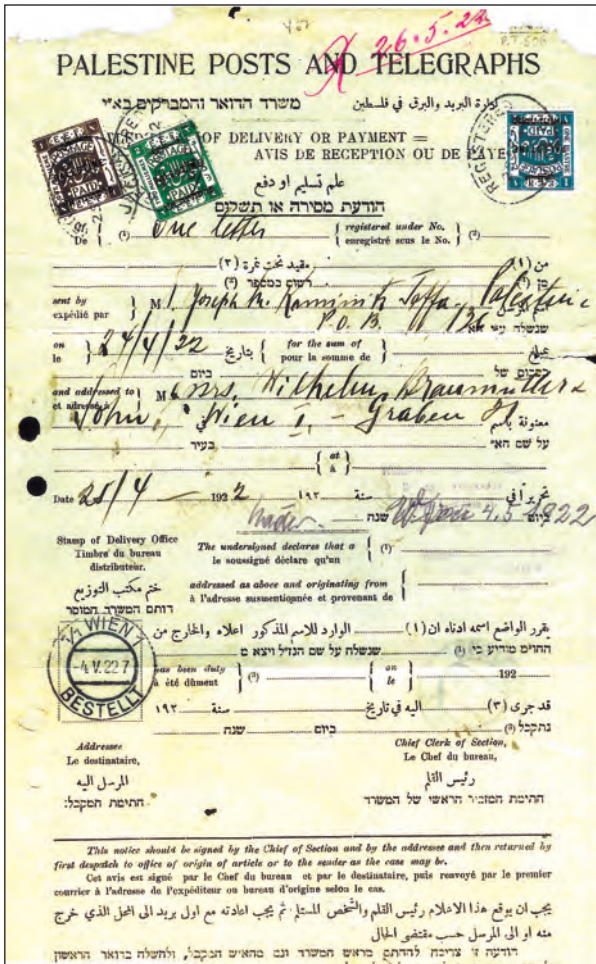 26.5.22
P.T. 506
PALESTINE POSTS AND TELEGRAPHS
משרד הדואר והמברקים בא"י
ادارة البريد والبرق في فلسطين
OF DELIVERY OR PAYMENT =
AVIS DE RECEPTION OU DE PAYE
علم تسليم او دفع
הודעת מסירה או תשלום
De (¹) One letter { registered under No. enregistré sous le No. } (²)
من (١) مقيد تحت نمرة (٢)
רשום במספר (²)
sent by
expédié par M r. Joseph M. Kaminitz Jaffa - Palestine
P.O.B. 136
שנשלה ע"י הא'
on
le 24/4/22 بتاريخ { for the sum of pour la somme de } مبلغ
ביום
and addressed to
et adressé à M essrs. Wilhelm Braumüller &
Sohn, Wien I, - Graben 21 معنونة باسم
על שם הא' בעיר
{ at à }
Date 25/4 - 1922 تحريراً في سنة ١٩٢
ביום שנה 4.5.1922
Stamp of Delivery Office
Timbre du bureau
distributeur.
ختم مكتب التوزيع
חותם המשרד המוסר
The undersigned declares that a
le soussigné déclare qu'un { (¹)
addressed as above and originating from
à l'adresse susmentionnée et provenant de {
يقرر الواضع اسمه ادناه ان (١) الوارد للاسم المذكور اعلاه والخارج من
החו"מ מודיע כי (¹) שנשלה על שם הנז"ל ויצא מ
has been duly
à été dûment { (³) { on le } 192
قد جرى (٣) اليه في تاريخ سنة ١٩٢
נתקבל (³) ביום שנה
1/1 WIEN
-4.V.22 7
BESTELLT
Addressee
Le destinataire,
المرسل اليه
חתימת המקבל:
Chief Clerk of Section,
Le Chef du bureau,
رئيس القلم
חתימת המזכיר הראשי של המשרד
This notice should be signed by the Chief of Section and by the addressee and then returned by
first despatch to office of origin of article or to the sender as the case may be.
Cet avis est signé par le Chef du bureau et par le destinataire, puis renvoyé par le premier
courrier à l'adresse de l'expéditeur ou bureau d'origine selon le cas.
يجب ان يوقع هذا الاعلام رئيس القلم والشخص المستلم ثم يجب اعادته مع اول بريد الى المحل الذي خرج
منه او الى المرسل حسب مقتضى الحال
הודעה זו צריכה להחתם מראש המשרד וגם מהאיש המקבל, ולהשלח בדואר הראשון